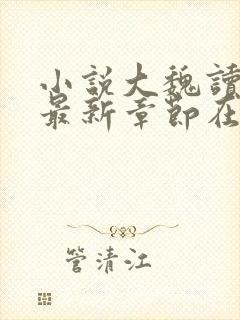 小説大魏讀
最新章節在
管清江